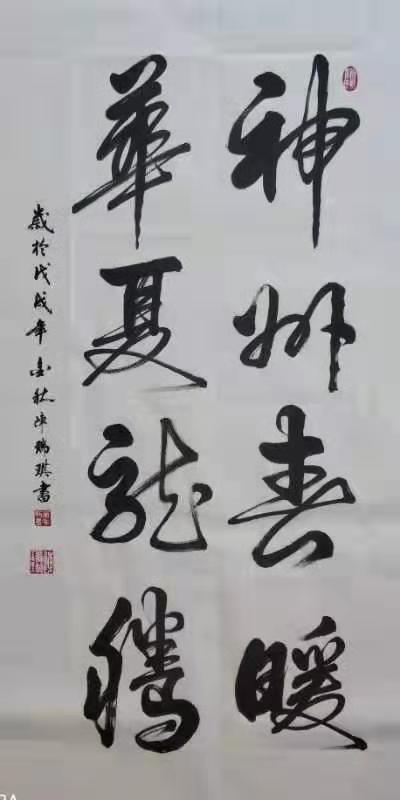 神州春暖
華夏龙腾
歲於戊戌年金秋陈瑞琪書